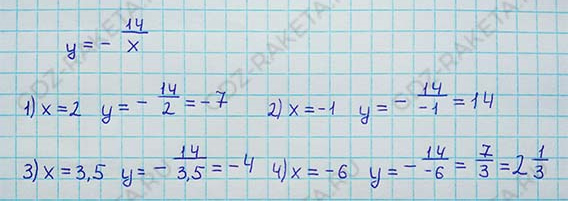 y = - 14/x
1) x = 2 y = - 14/2 = -7 2) x = -1 y = - 14/-1 = 14
3) x = 3,5 y = - 14/3,5 = -4 4) x = -6 y = - 14/-6 = 7/3 = 2 1/3
GDZ-RAKETA.RU